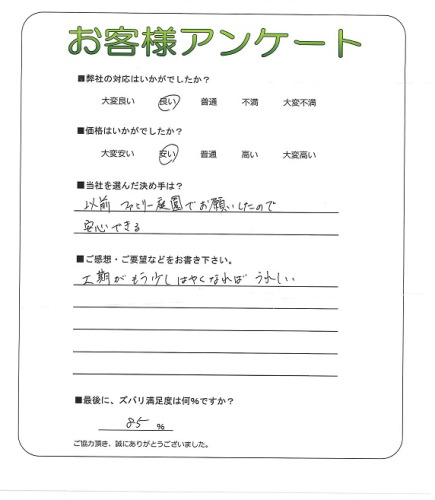 お客様アンケート
■弊社の対応はいかがでしたか?
大変良い 良い 普通 不満 大変不満
■価格はいかがでしたか?
大変安い 安い 普通 高い 大変高い
■当社を選んだ決め手は?
以前 ファミリー庭園でお願いしたので
安心できる
■ご感想・ご要望などをお書き下さい。
工期がもう少しはやくなれば うれしい
■最後に、ズバリ満足度は何%ですか?
85 %
ご協力頂き、誠にありがとうございました。